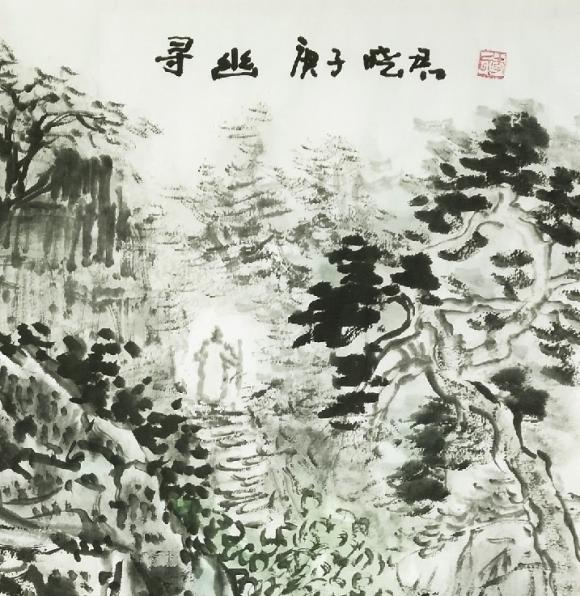 寻幽 庚子晓君